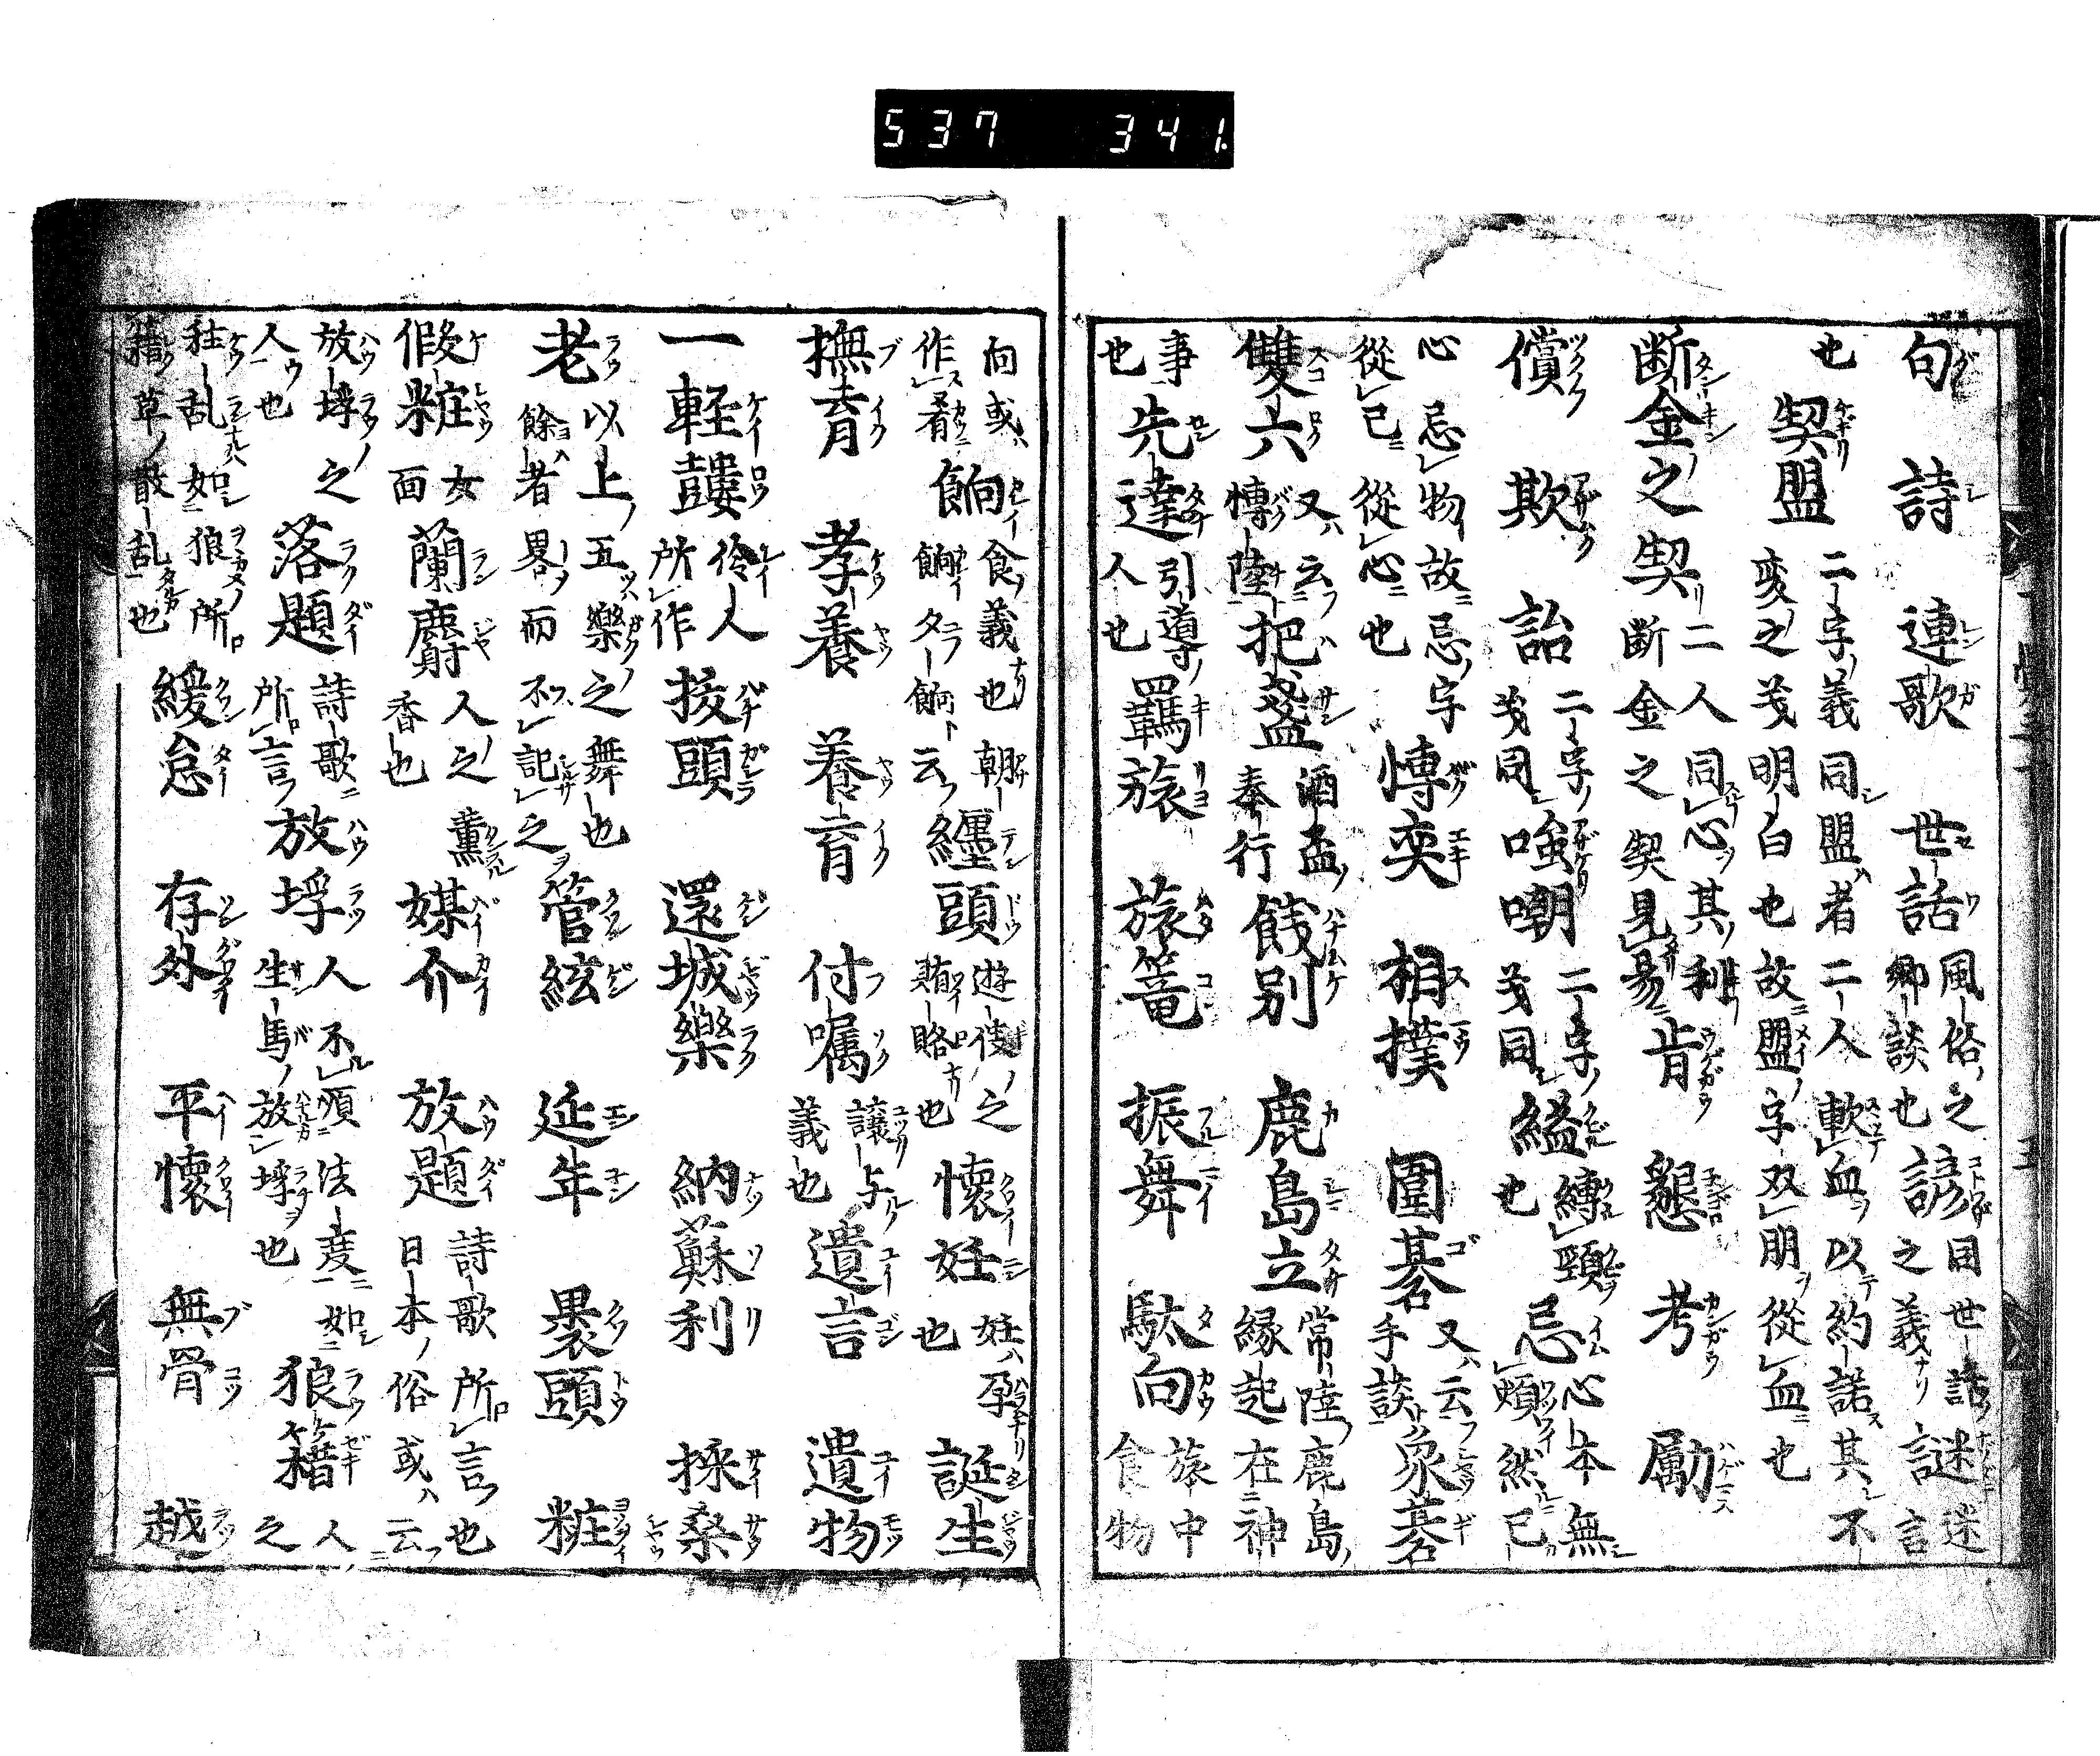 537 341.
句 詩 連歌 世話 風俗之 郷談也 諺 因世話 之義 謎 迷言
也 契盟 二字義同盟者二人歃血以約諾其不 変之義明白也故盟字双朋從血也
断金之契 二人同心其利 断金之契見易 肯 懇 考 励
償 欺 詒 二字 義同 嗤嘲 二字 義同 縊 縛頸 也 忌 心本無 然己
心忌物故忌字 從己從心也 博奕 相撲 囲碁 又云 手談 象碁
雙六 又云 博陸 把盞 酒盃 奉行 餞別 鹿島立 常陸鹿島 縁起在神
事也 先達 引導 人也 羇旅 旅篭 振舞 駄向 旅中 食物
向或 作 餉 食義也朝 餉夕餉云 纏頭 之 賄賂也 懐妊 妊孕 也 誕生
撫育 孝養 養育 付囑 譲与 義也 遺言 遺物
一軽鼓 伶人 所作 抜頭 還城樂 納蘇利 採桑
老 以上五樂之舞也 餘者畧而不記之 管絃 延年 裹頭 粧
假粧 女面 蘭麝 人之薫 香也 媒介 放題 詩歌所言也 日本俗或云
放埓之 人也 落題 詩歌 所言 放埓 人不順法度如 生馬放埓也 狼籍 人之
狂乱如狼所 籍草散乱也 緩怠 存外 平懐 無骨 越